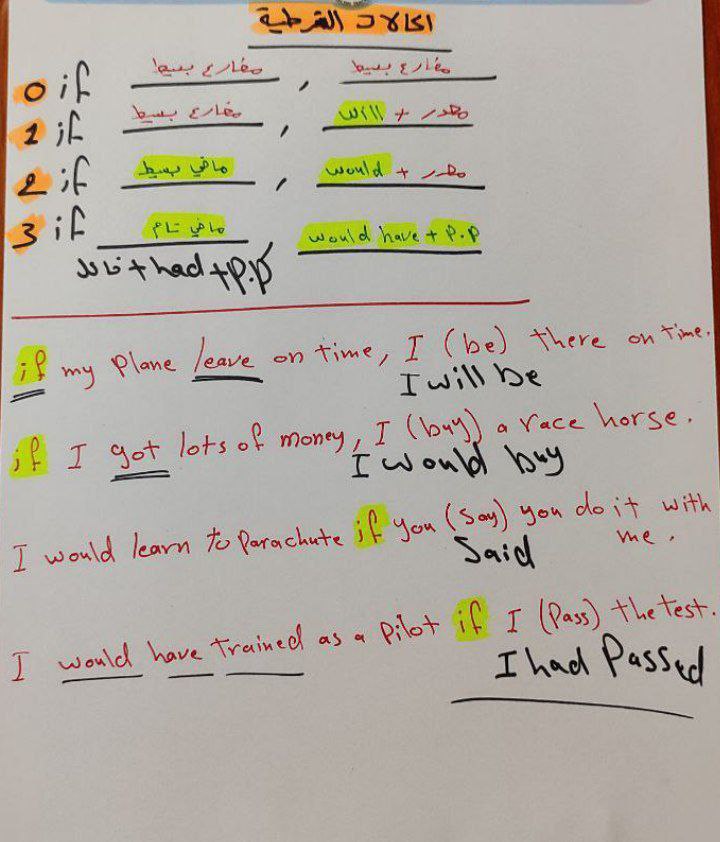 الحالات الشرطية
0 if مضارع بسيط , مضارع بسيط
1 if مضارع بسيط , will + مصدر
2 if ماضي بسيط , would + مصدر
3 if ماضي تام would have + P.P
فاعل + had + P.P
if my plane leave on time, I (be) there on time.
I will be
if I got lots of money, I (buy) a race horse.
I would buy
I would learn to Parachute if you (say) you do it with me.
Said
I would have trained as a Pilot if I (Pass) the test.
I had Passed